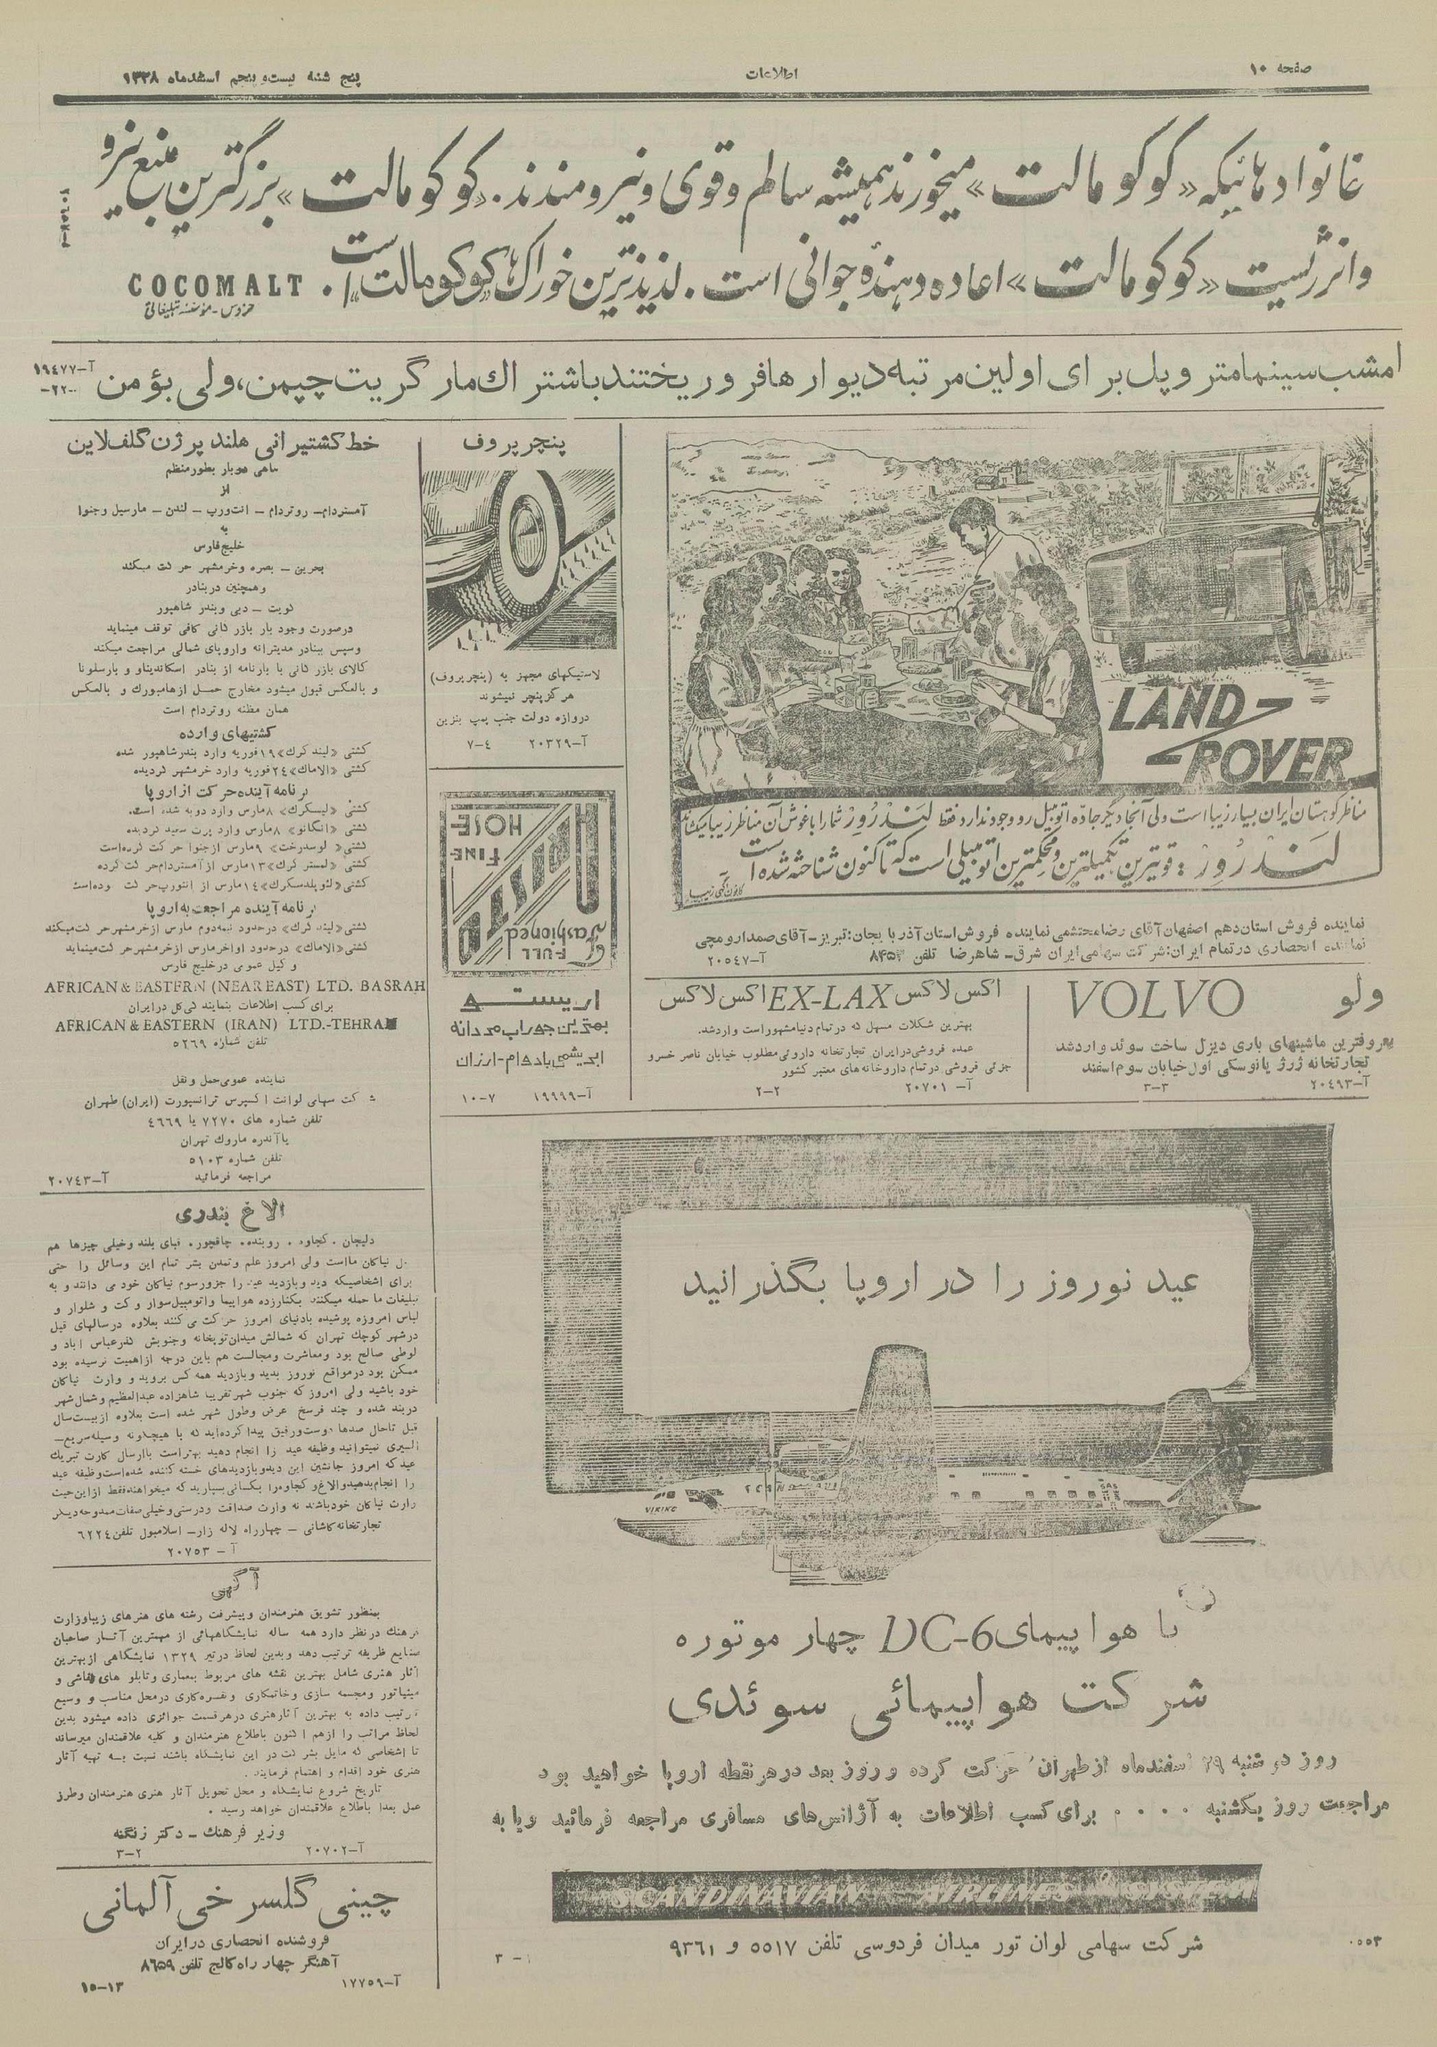 صفحه ۱۰
اطلاعات
پنج شنبه بیست و پنجم اسفندماه ۱۳۳۸
خانواده‌هائیکه «کوکومالت» میخورند همیشه سالم و قوی و نیرومندند. «کوکومالت» بزرگترین منبع نیرو
و انرژیست «کوکومالت» اعاده دهنده جوانی است. لذیذترین خوراک‌ها کوکومالت است.
COCOMALT
امشب سینما متروپل برای اولین مرتبه دیوارها فرو ریختند باشتراك مارگریت چپمن، ولی بؤمن
آ-۱۹٤۷۷
LAND-ROVER
مناظر کوهستان ایران بسیار زیباست ولی آنجا دیگر جاده اتومبیل رو وجود ندارد فقط لندرور شما را باغوش آن مناظر زیبا میکشاند
لندرور: قویترین تکمیلترین و محکمترین اتومبیلی است که تا کنون شناخته شده است
کانون آگهی زیبا
نماینده فروش استان دهم اصفهان آقای رضا محتشمی نماینده فروش استان آذربایجان: تبریز-آقای صمد ارومچی
نماینده انحصاری در تمام ایران: شرکت سهامی ایران شرق- شاهرضا تلفن
آ-۲۰٥٤۷
پنچر پروف
لاستیکهای مجهز به (پنچر پروف)
هرگز پنچر نمیشوند
دروازه دولت جنب پمپ بنزین
آ-۲۰۳۲۹ ۷-٤
ARISTO
FINE HOSE
FULL Fashioned
اریستو
بهترین جوراب مردانه
ابریشمی بادوام-ارزان
آ-۱۹۹۹۹ ۱۰-۷
ولو VOLVO
معروفترین ماشینهای باری دیزل ساخت سوئد وارد شد
تجارتخانه ژرژ یانوسکی اول خیابان سوم اسفند
آ-۲۰٤۹۳ ۳-۳
اکس لاکس EX-LAX اکس لاکس
بهترین شکلات مسهل که در تمام دنیا مشهور است وارد شد.
عمده فروشی در ایران تجارتخانه داروئی مطلوب خیابان ناصر خسرو
جزئی فروشی در تمام داروخانه‌های معتبر کشور
آ- ۲۰۷۰۱ ۲-۲
عید نوروز را در اروپا بگذرانید
VIKING
با هواپیمای DC-6 چهار موتوره
شرکت هواپیمائی سوئدی
روز دوشنبه ۲۹ اسفندماه از طهران حرکت کرده و روز بعد در هر نقطه اروپا خواهید بود
مراجعت روز یکشنبه .... برای کسب اطلاعات به آژانس‌های مسافری مراجعه فرمائید و یا به
SCANDINAVIAN AIRLINES SYSTEM
شرکت سهامی لوان تور میدان فردوسی تلفن ٥٥۱۷ و ۹۳٦۱
خط کشتیرانی هلند پرژن گلف لاین
ماهی دوبار بطور منظم
از
آمستردام- روتردام - انت‌ورپ - لندن - مارسیل و جنوا
به
خلیج فارس
بحرین - بصره و خرمشهر حرکت میکند
وهمچنین در بنادر
کویت - دبی و بندر شاهپور
در صورت وجود بار بازرگانی کافی توقف مینماید
وسپس ببنادر مدیترانه و اروپای شمالی مراجعت میکند
کالای بازرگانی با بارنامه از بنادر اسکاندیناو و بارسلونا
و بالعکس قبول میشود مخارج حمل از هامبورك و بالعکس
همان مظنه روتردام است
کشتیهای وارده
کشتی «لیندکرك» ۱۹ فوریه وارد بندرشاهپور شده
کشتی «الاماك» ۲٤ فوریه وارد خرمشهر گردیده
برنامه آینده حرکت از اروپا
کشتی «لیسکرك» ۸ مارس وارد دوبه شده است.
کشتی «انگانو» ۸ مارس وارد پرت سعید گردیده
کشتی «لوسدرخت» ۹ مارس از جنوا حرکت کرده است
کشتی «لسترکرك» ۱۳ مارس از آمستردام حرکت کرده
کشتی «لئوپلدسکرك» ۱٤ مارس از انتورپ حرکت نموده است
برنامه آینده مراجعت به اروپا
کشتی «لیندکرك» در حدود نیمه دوم مارس از خرمشهر حرکت میکند
کشتی «الاماك» در حدود اواخر مارس از خرمشهر حرکت مینماید
وکیل عمومی در خلیج فارس
AFRICAN & EASTERN (NEAR EAST) LTD. BASRAH
برای کسب اطلاعات بنمایندگی کل در ایران
AFRICAN & EASTERN (IRAN) LTD.-TEHRAN
تلفن شماره ٥۲٦۹
نماینده عمومی حمل و نقل
شرکت سهامی لوانت اکسپرس ترانسپورت (ایران) طهران
تلفن شماره های ۷۲۷۰ یا ٤٦٦۹
یا آندره ماروك تهران
تلفن شماره ٥۱۰۳
مراجعه فرمائید
آ-۲۰۷٤۳
الاغ بندری
دلیجان. کجاوه. روبنده. چاقچور. قبای بلند و خیلی چیزها هم
مال نیاکان ماست ولی امروز علم وتمدن بشر تمام این وسائل را حتی
برای اشخاصیکه دید و بازدید عید را جزو رسوم نیاکان خود می دانند و به
تبلیغات ما حمله میکنند بکنار زده هواپیما واتومبیل سوار و کت و شلوار و
لباس امروزه پوشیده بادنیای امروز حرکت می کنند بعلاوه در سالهای قبل
در شهر کوچك تهران که شمالش میدان توپخانه و جنوبش گذر عباس آباد و
لوطی صالح بود و معاشرت ومجالست هم باین درجه از اهمیت نرسیده بود
ممکن بود در مواقع نوروز بدید وبازدید همه کس بروید و وارث نیاکان
خود باشید ولی امروز که جنوب شهر تقریبا شاهزاده عبدالعظیم وشمال شهر
دربند شده و چند فرسخ عرض وطول شهر شده است بعلاوه از بیست سال
قبل تاحال صدها دوست ورفیق پیدا کرده‌اید که با هیچگونه وسیله سریع-
السیری نمیتوانید وظیفه عید را انجام دهید بهتر است باارسال کارت تبریك
عید که امروز جانشین این دید و بازدیدهای خسته کننده شده است وظیفه عید
را انجام بدهید والاغ و کجاوه را بکسانی بسپارید که میخواهند فقط از این حیث
وارث نیاکان خود باشند نه وارث صداقت و درستی وخیلی صفات ممدوحه دیگر
تجارتخانه کاشانی - چهارراه لاله زار- اسلامبول تلفن ٦۲۲٤
آ - ۲۰۷٥۳
آگهی
بمنظور تشویق هنرمندان و پیشرفت رشته های هنرهای زیبا وزارت
فرهنك در نظر دارد همه ساله نمایشگاههائی از مهمترین آثار صاحبان
صنایع ظریفه ترتیب دهد و بدین لحاظ در تیر ۱۳۲۹ نمایشگاهی از بهترین
آثار هنری شامل بهترین نقشه های مربوط بمعماری و تابلو های نقاشی و
مینیاتور و مجسمه سازی و خاتمکاری و نقره‌کاری در محل مناسب و وسیع
ترتیب داده به بهترین آثار هنری در هر قسمت جوائزی داده میشود بدین
لحاظ مراتب را از هم اکنون باطلاع هنرمندان و کلیه علاقمندان میرساند
تا اشخاصی که مایل بشرکت در این نمایشگاه باشند نسبت به تهیه آثار
هنری خود اقدام و اهتمام فرمایند.
تاریخ شروع نمایشگاه و محل تحویل آثار هنری هنرمندان وطرز
عمل بعدا باطلاع علاقمندان خواهد رسید.
وزیر فرهنك - دکتر زنگنه
آ-۲۰۷۰۲ ۳-۲
چینی گلسرخی آلمانی
فروشنده انحصاری در ایران
آهنگر چهار راه کالج تلفن ۸٦٥۹
آ-۱۷۷٥۹ ۱٥-۱۳